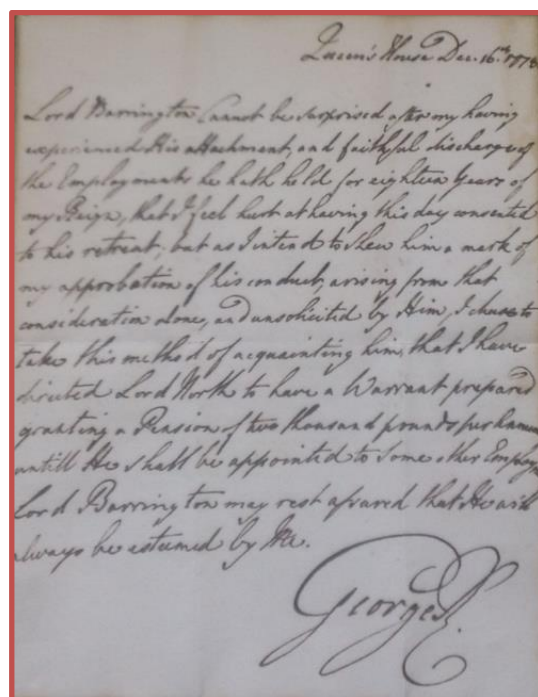 Queen's House Dec. 16.th 1778
Lord Barrington Cannot be surprised after my having
experienced His attachment, and faithful discharge of
the Employments he hath held for eighteen Years of
my Reign, that I feel hurt at having this day consented
to his retreat; but as I intend to shew him a mark of
my approbation of his conduct, arising from that
consideration alone, and unsolicited by Him, I chuse to
take this method of acquainting him, that I have
directed Lord North to have a Warrant prepared
granting a Pension of two thousand pounds per Annum
untill He shall be appointed to some other Employ
Lord Barrington may rest assured that He will
always be esteemed by Me.
George R.